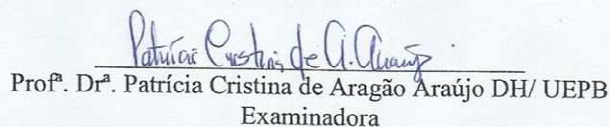 Patrícia Cristina de A. Araújo
Profª. Drª. Patrícia Cristina de Aragão Araújo DH/ UEPB
Examinadora